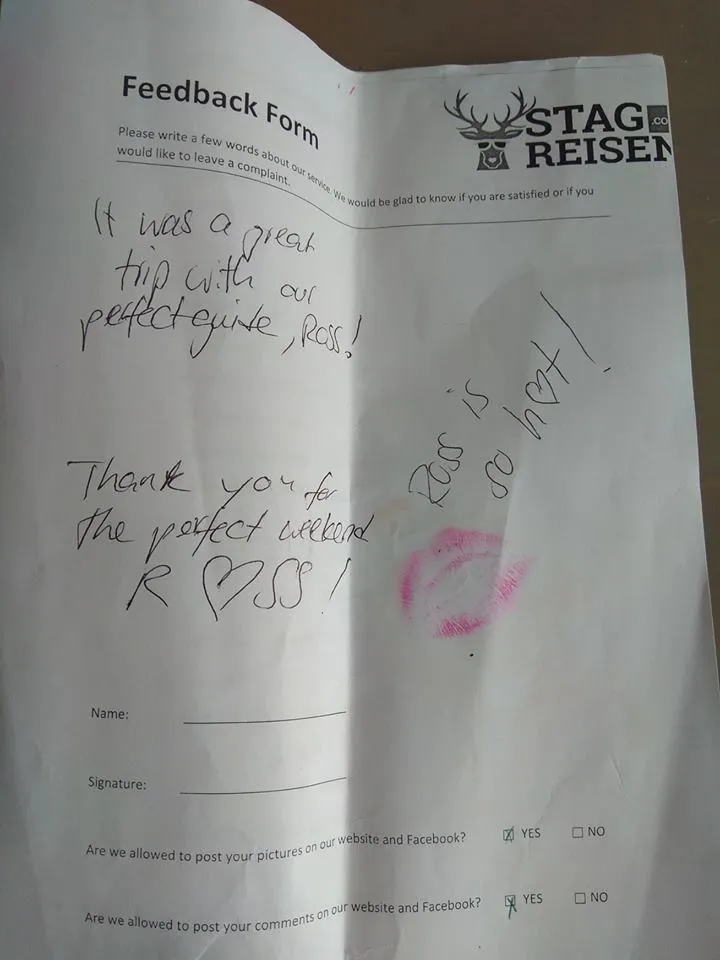 Feedback Form
STAG .CO
REISEN
Please write a few words about our service. We would be glad to know if you are satisfied or if you
would like to leave a complaint.
It was a great
trip with our
perfect guide, Ross!
Ross is
so h♡t!
Thank you for
the perfect weekend
R♡SS!
Name:
Signature:
Are we allowed to post your pictures on our website and Facebook? ☒ YES ☐ NO
Are we allowed to post your comments on our website and Facebook? ☒ YES ☐ NO